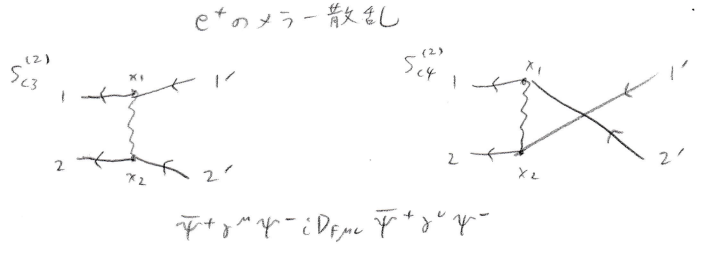 e⁺のメラー散乱
S_{C3}^{(2)}
1 x₁ 1'
2 x₂ 2'
S_{C4}^{(2)}
1 x₁ 1'
2 x₂ 2'
ψ̄⁺γ^μψ⁻iD_{Fμν}ψ̄⁺γ^νψ⁻